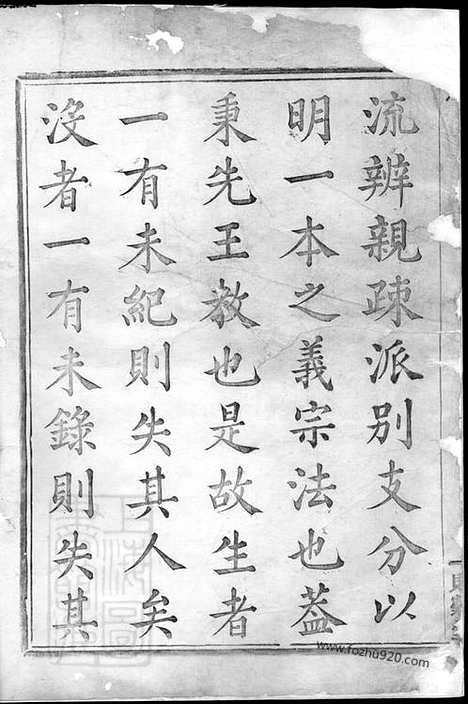 流辨親疎派別支分以
明一本之義宗法也蓋
秉先王教也是故生者
一有未紀則失其人矣
沒者一有未錄則失其
www.fozhu920.com